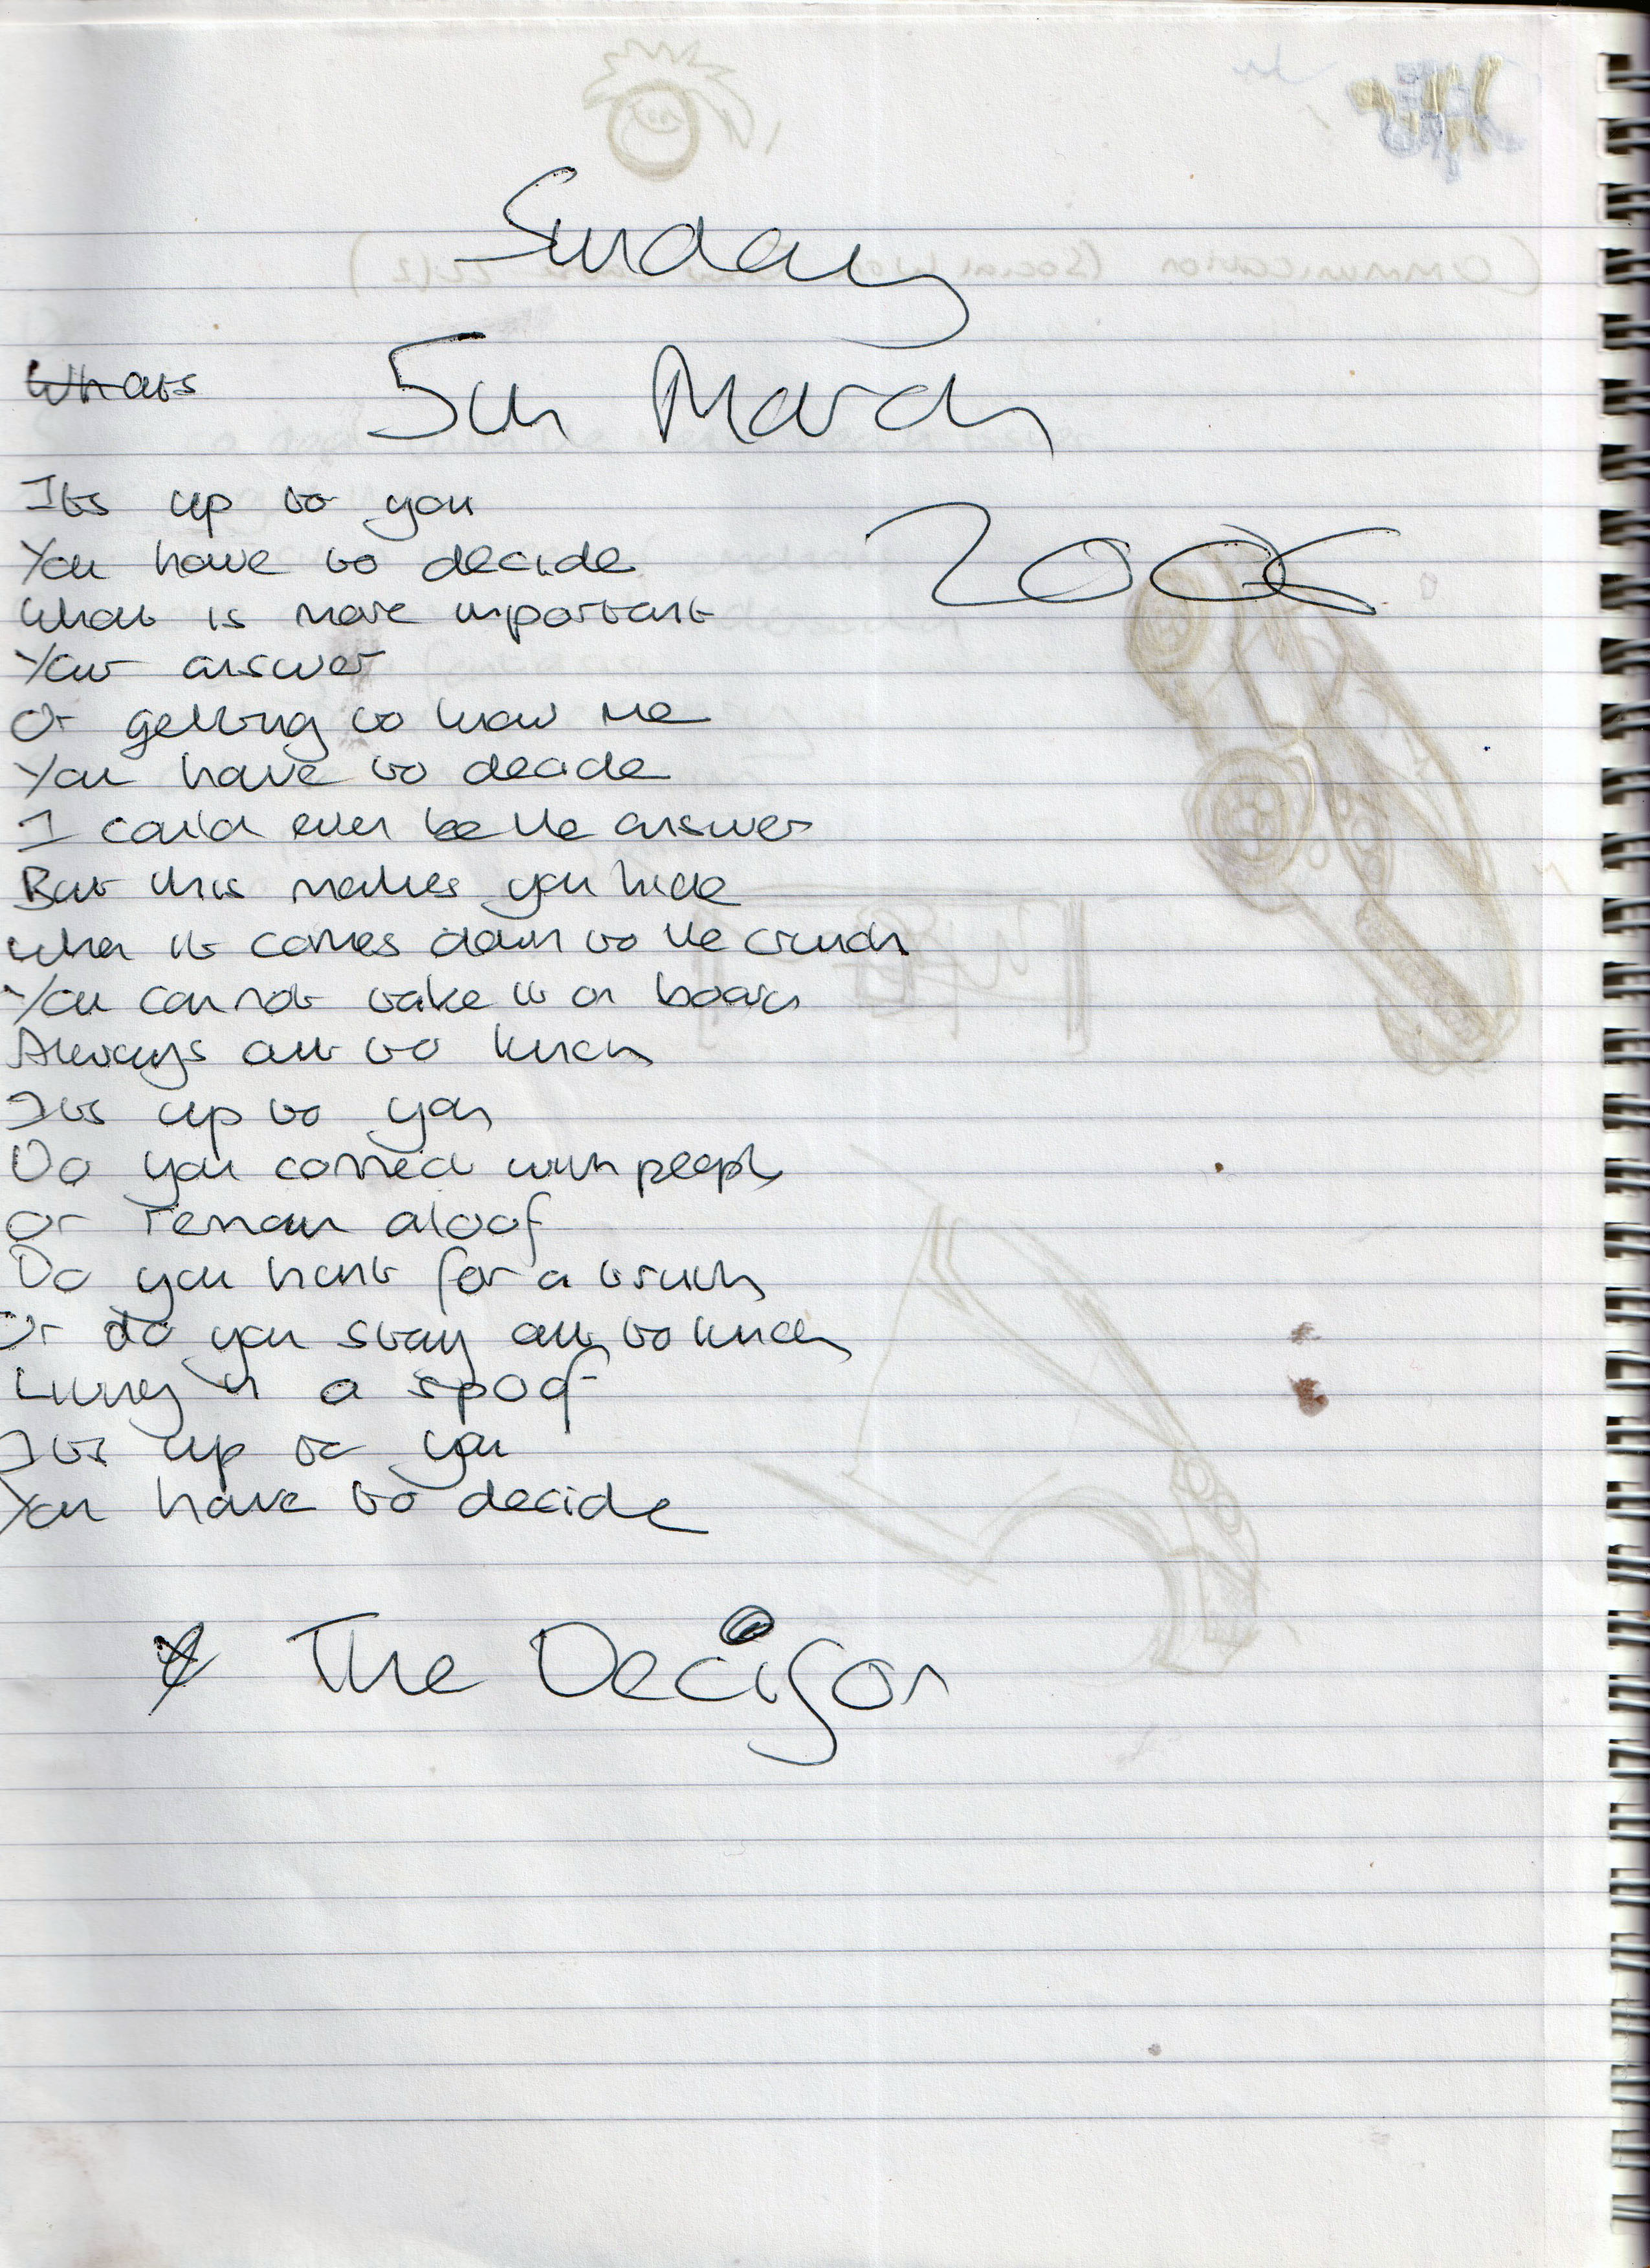 Sunday
5th March
2006
Whats
Its up to you
You have to decide
What is more important
Your answer
Or getting to know me
You have to decide
I could even be the answer
But this makes you hide
When it comes down to the crunch
You can not take it on board
Always out to lunch
Its up to you
Do you connect with people
or remain aloof
Do you hunt for a truth
Or do you stay out to lunch
Living in a spoof
Its up to you
You have to decide
The Decison
Communication (Social Work